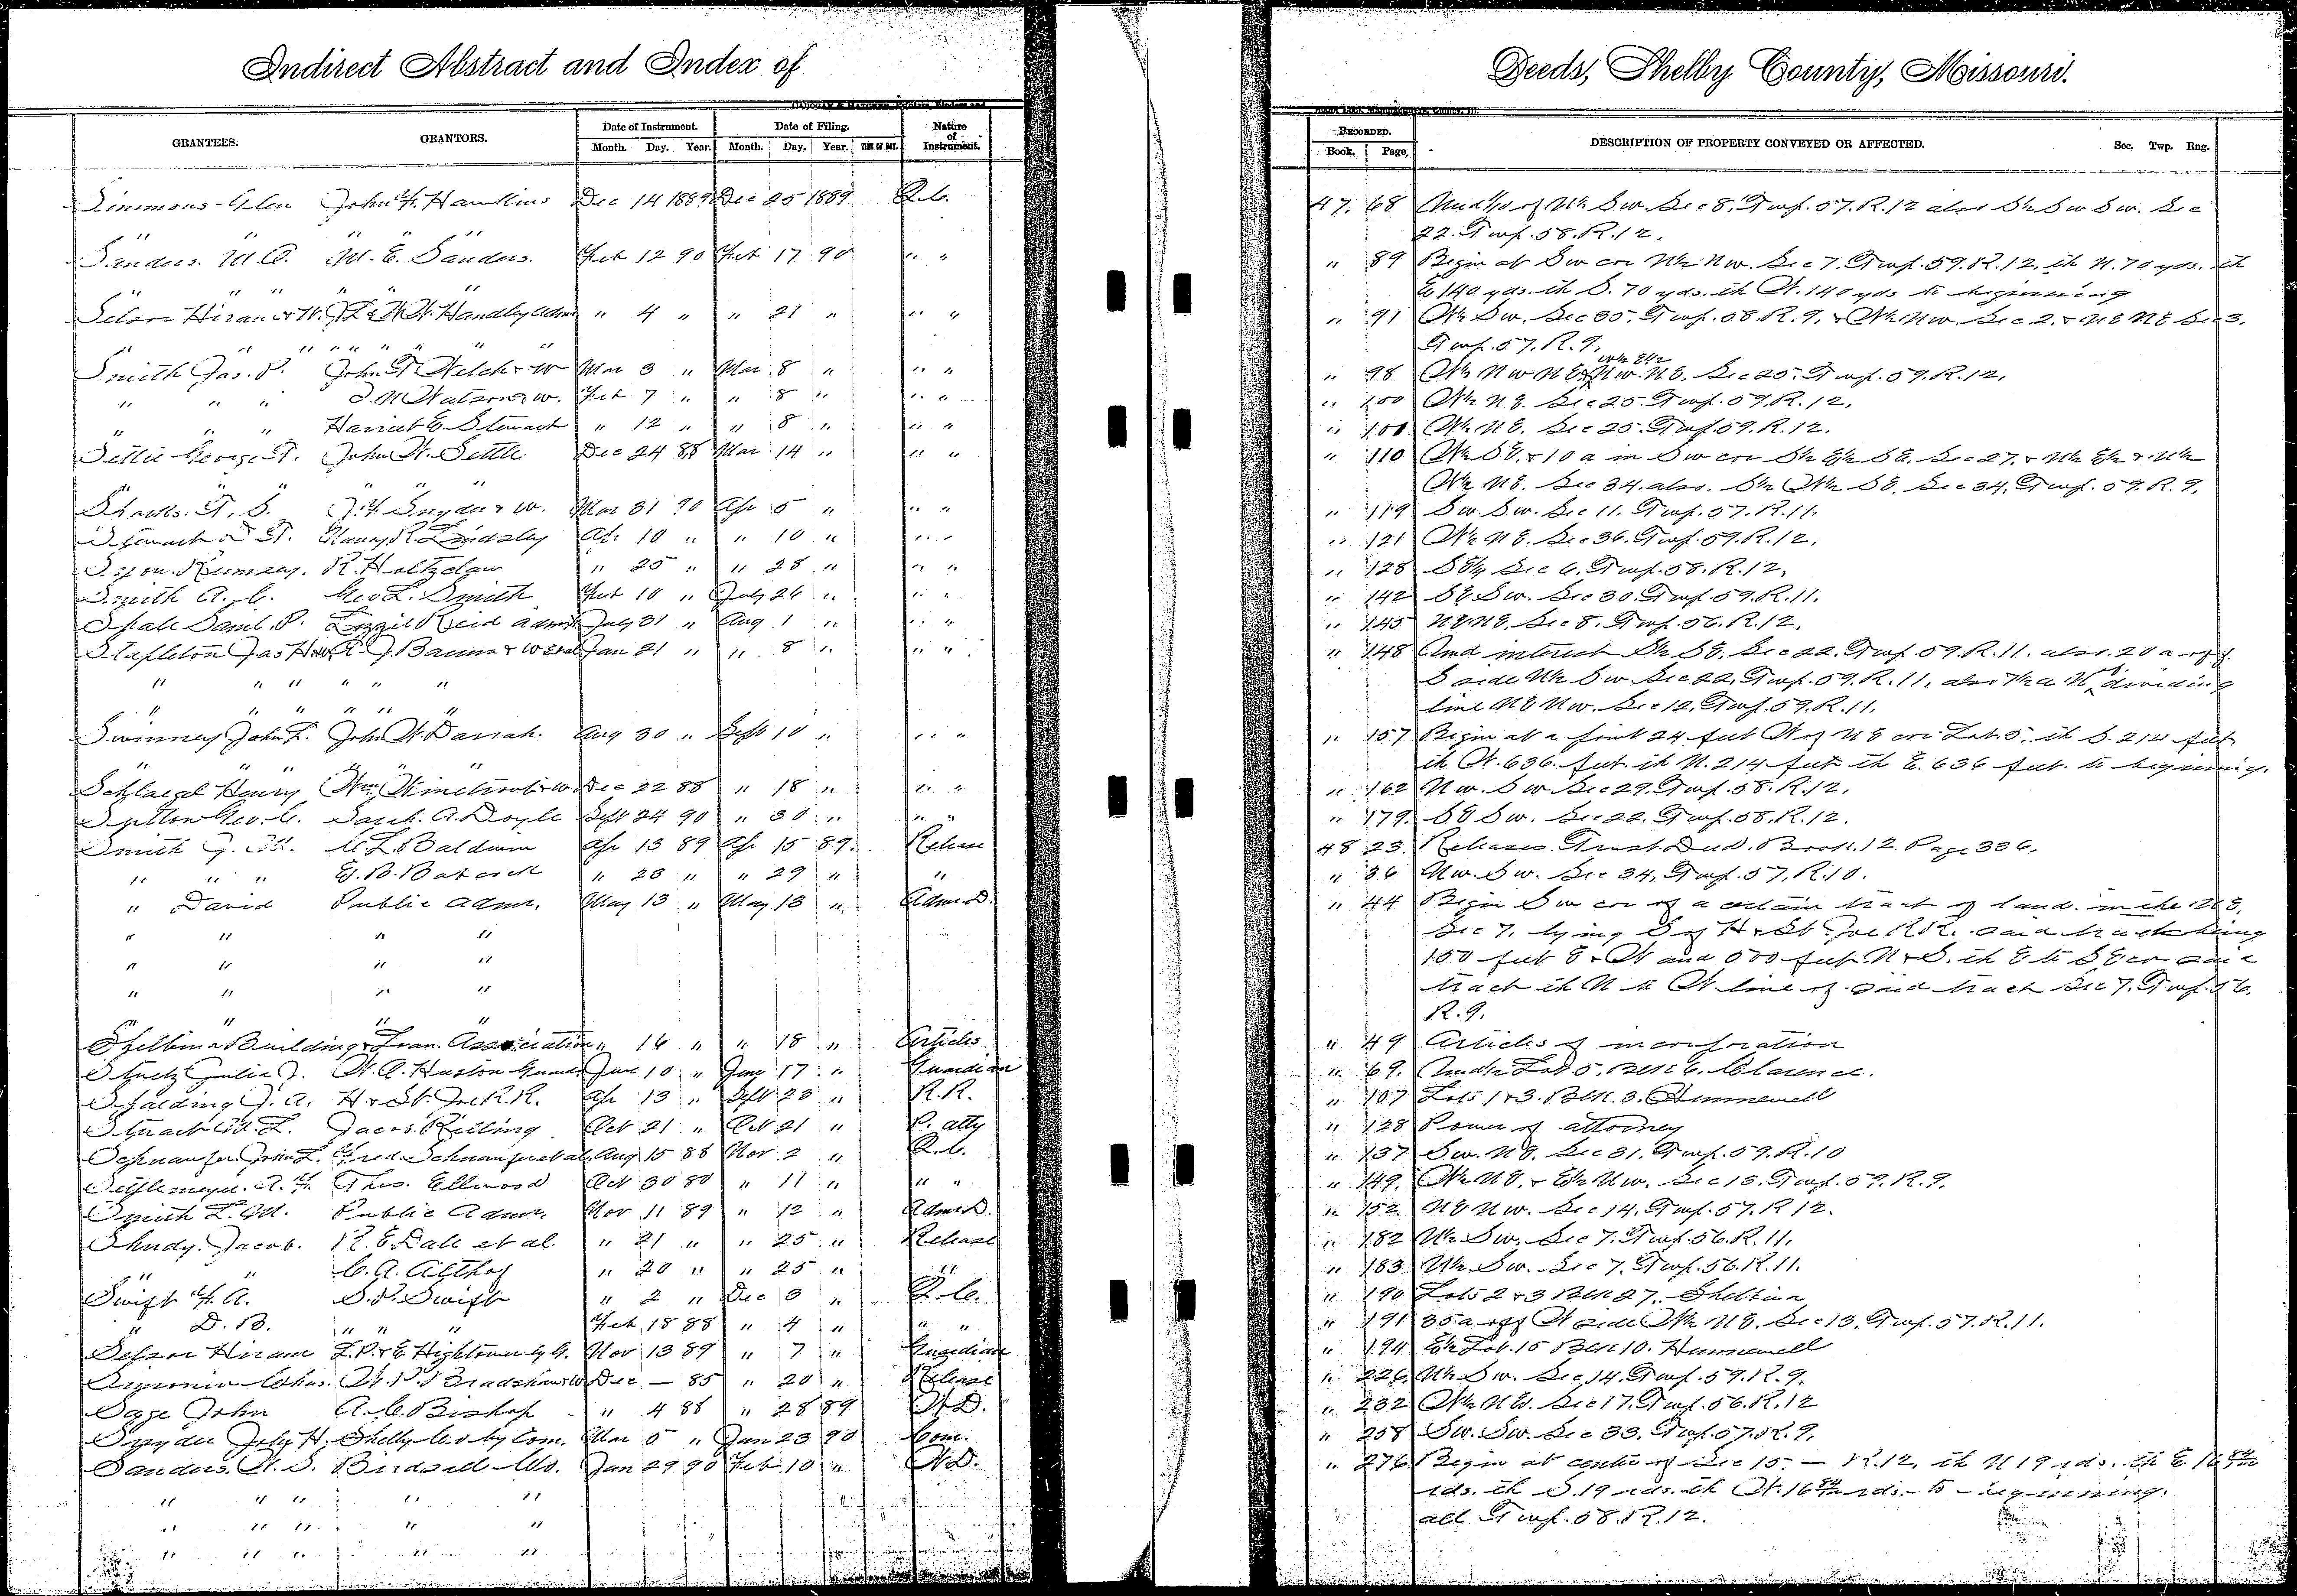 Indirect Abstract and Index of
Deeds, Shelby County, Missouri.
GRANTEES. GRANTORS. Date of Instrument. Date of Filing. Nature of Instrument.
Month. Day. Year. Month. Day. Year.
RECORDED. DESCRIPTION OF PROPERTY CONVEYED OR AFFECTED. Sec. Twp. Rng.
Book. Page.
Simmons Glen John F. Hawkins Dec 14 1889 Dec 25 1889 Q.C. 47. 68 Sw. Sec 8. Twp. 57. R. 12 also Sw Sw. Sec
" " " " 22. Twp. 58. R. 12.
Sanders M. E. Sanders. Feb 12 90 Feb 17 90 " " " 89 Begin at Sw cor Nw. Sec 7. Twp. 59. R. 12. th N. 70 yds. th
" " " " " E 140 yds. th S. 70 yds. th W. 140 yds to beginning
Selsor Hiram & W. Handley Adm " 4 " " 21 " " " " 91 W½ Sw. Sec 35. Twp. 58. R. 9. & Nw. Sec 2. & NE NE Sec 3.
" " " " " " " Twp. 57. R. 9.
Smith Jas. P. John T. Welch & W Mar 3 " Mar 8 " " " " 98 W½ Nw NE & W½ E½ Nw. NE. Sec 25. Twp. 59. R. 12.
" " " Watson & W. Feb 7 " " 8 " " " " 100 W½ NE. Sec 25. Twp. 59. R. 12.
" " " Harriet E. Stewart " 12 " " 8 " " " " 101 W½ NE. Sec 25. Twp. 59. R. 12.
Settle George T. John W. Settle Dec 24 88 Mar 14 " " " " 110 W½ SE. & 10 a in Sw cor S½ E½ SE. Sec 27. & N½ E½ & N½
" " " " " W½ NE. Sec 34. also. S½ W½ SE. Sec 34. Twp. 59. R. 9.
T. S. Snyder & W. Mar 31 90 Apr 5 " " " " 119 Sw. Sw. Sec 11. Twp. 57. R. 11.
Stewart T. Nancy R. Lindsley Apr 10 " " 10 " " " " 121 W½ NE. Sec 36. Twp. 59. R. 12.
Rumsey. R. Holtzclaw " 25 " " 28 " " " " 128 Sec 6. Twp. 58. R. 12.
Smith A. C. Geo L. Smith Feb 10 " July 26 " " " " 142 SE Sw. Sec 30. Twp. 59. R. 11.
Saml. P. Lizzie Reid July 31 " Aug 1 " " " " 145 NE NE. Sec 8. Twp. 56. R. 12.
Stapleton Jas H & W. J. Baum & W et al Jan 21 " " 8 " " " " 148 Und interest S½ SE. Sec 22. Twp. 59. R. 11. also. 20 a off
" " " " " " S side N½ Sw Sec 22. Twp. 59. R. 11. also N of dividing
" " " " " " line NE Nw. Sec 12. Twp. 59. R. 11.
Swinney John L. John W. Darrah. Aug 30 " Sept 10 " " " " 157 Begin at a point 24 feet W of NE cor Lot 5. th S. 214 feet
" " " " " th W. 636. feet. th N. 214 feet th E. 636 feet. to beginning.
Schlagel Henry Wm & W Dec 22 88 " 18 " " " " 162 Nw. Sw Sec 29. Twp. 58. R. 12.
Sutton Geo. C. Sarah. A. Doyle Sept 24 90 " 30 " " " " 179. SE Sw. Sec 22. Twp. 58. R. 12.
Smith J. M. Baldwin Apr 13 89 Apr 15 89. Release 48 23. Releases Trust Deed. Book. 12. Page 336.
" " " E. B. Babcock " 23 " " 29 " " " 36 Nw. Sw. Sec 34. Twp. 57. R. 10.
" David Public Admr. May 13 " May 13 " Adm. D. " 44 Begin Sw cor of a certain tract of land. in the NE.
" " " " Sec 7. lying S of H & St. Joe R.R. said tract being
" " " " 150 feet E & W and 500 feet N & S. th E to S E cor said
" " " " tract th N to W. line of said tract Sec 7. Twp. 56.
" " " " R. 9.
Shelbina Building & Loan. Association " 16 " " 18 " Articles " 49 Articles of incorporation
Julia J. W. A. Huston Guard June 10 " June 17 " Guardian " 69. Lot 5. Blk 6. Clarence.
Spalding J. A. H & St. Joe R.R. Apr 13 " Sept 23 " R.R. " 107 Lots 1 & 3. Blk. 3. Hunnewell
Stuart M. L. Jacob Oct 21 " Oct 21 " P. atty " 128 Power of attorney
Schnaufer. John L. Fred. Schnaufer et al. Aug 15 88 Nov. 2 " Q.C. " 137 Sw. NE. Sec 31. Twp. 59. R. 10
Settlemeyer. Thos. Ellwood Oct 30 80 " 11 " " " " 149. W½ NE. & E½ Nw. Sec 13. Twp. 59. R. 9.
Smith L. M. Public Admr. Nov 11 89 " 12 " Adm. D. " 152. NE Nw. Sec 14. Twp. 57. R 12.
Jacob. R. E. Dale et al " 21 " " 25 " Release " 182 N½ Sw. Sec 7. Twp. 56. R. 11.
" " C. A. " 20 " " 25 " " " 183 N½ Sw. Sec 7. Twp. 56. R. 11.
Swift F. A. S. P. Swift " 2 " Dec 3 " Q.C. " 190 Lots 2 & 3 Blk 27. Shelbina
" D. B. " " Feb 18 88 " 4 " " " " 191 35 a off W side W½ NE. Sec 13. Twp. 57. R. 11.
Selsor Hiram L. P. & E. Hightower Nov 13 89 " 7 " Guardian " 194 E½ Lot. 15 Blk 10. Hunnewell
Chas. Bradshaw & W Dec — 85 " 20 " Release " 226. N½ Sw. Sec 14. Twp. 59. R. 9.
Sage John A. C. Bishop " 4 88 " 28 89 W.D. " 232 Sec 17. Twp. 56. R. 12
Snyder John H. Shelby Co by Com. Mar 5 " Jan 23 90 Com. " 258 Sw. Sw. Sec 33. Twp. 57. R. 9.
Sanders. W. S. Birdsall Jan 29 90 Feb 10 " W.D. " 276 Begin at center of Sec 15. — R. 12. th N 19 rds. th E 16
" " " " " rds. th S. 19 rds. th W. 16 rds. to beginning.
" " " " " all Twp. 58. R. 12.
" " " " "